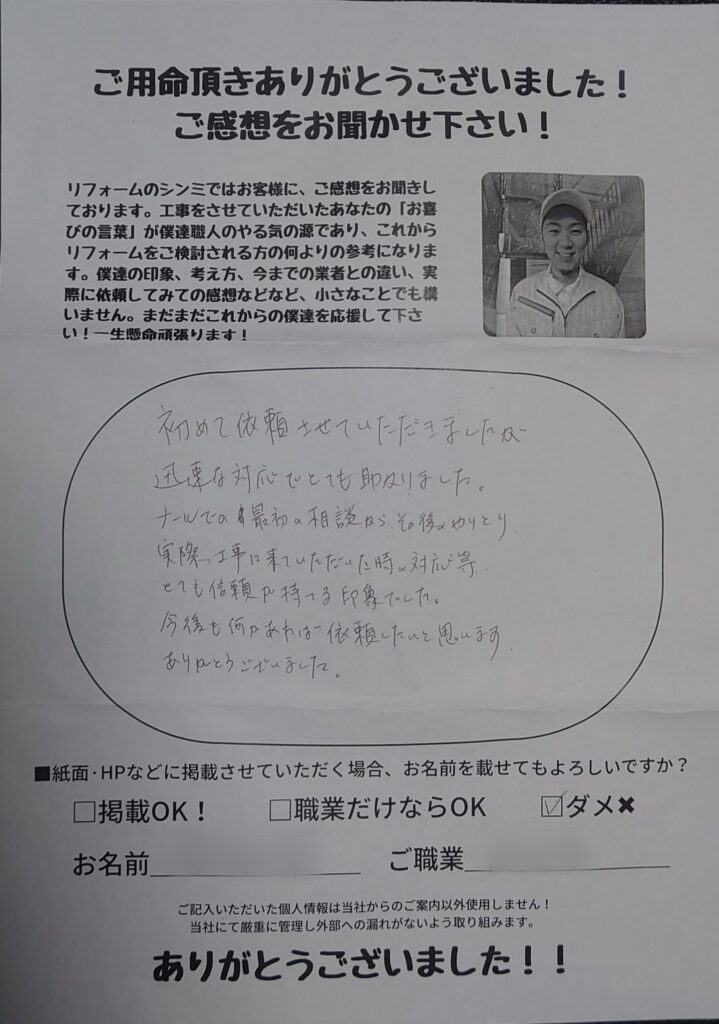 ご用命頂きありがとうございました！
ご感想をお聞かせ下さい！
リフォームのシンミではお客様に、ご感想をお聞きし
ております。工事をさせていただいたあなたの「お喜
びの言葉」が僕達職人のやる気の源であり、これから
リフォームをご検討される方の何よりの参考になりま
す。僕達の印象、考え方、今までの業者との違い、実
際に依頼してみての感想などなど、小さなことでも構
いません。まだまだこれからの僕達を応援して下さ
い！一生懸命頑張ります！
初めて依頼させていただきましたが
迅速な対応でとても助かりました。
メールでの最初の相談から、その後のやりとり、
実際、工事に来ていただいた時の対応等、
とても信頼が持てる印象でした。
今後も何かあれば依頼したいと思います
ありがとうございました。
■紙面･HPなどに掲載させていただく場合、お名前を載せてもよろしいですか？
□掲載OK！ □職業だけならOK ☑ダメ✖
お名前 ご職業
ご記入いただいた個人情報は当社からのご案内以外使用しません！
当社にて厳重に管理し外部への漏れがないよう取り組みます。
ありがとうございました！！